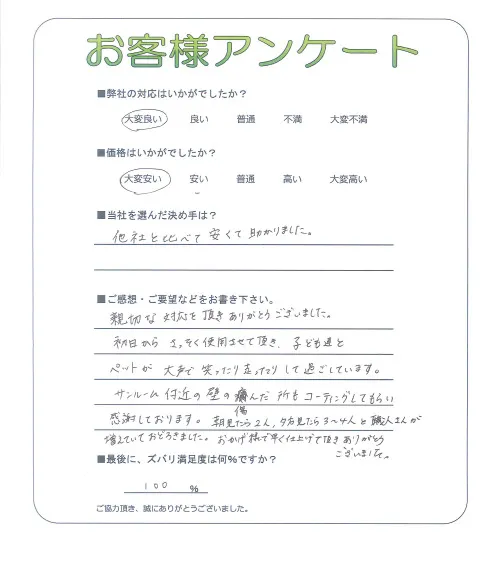 お客様アンケート
■弊社の対応はいかがでしたか？
大変良い 良い 普通 不満 大変不満
■価格はいかがでしたか？
大変安い 安い 普通 高い 大変高い
■当社を選んだ決め手は？
他社と比べて安くて助かりました。
■ご感想・ご要望などをお書き下さい。
親切な対応を頂きありがとうございました。
初日からさっそく使用させて頂き、子ども達と
ペットが大声で笑ったり走ったりして過ごしています。
サンルーム付近の壁の傷んだ所もコーティングしてもらい
感謝しております。朝見たら2人,夕方見たら3〜4人と職人さんが
増えていておどろきました。おかげ様で早く仕上げて頂きありがとう
ございました。
■最後に、ズバリ満足度は何%ですか？
100 %
ご協力頂き、誠にありがとうございました。